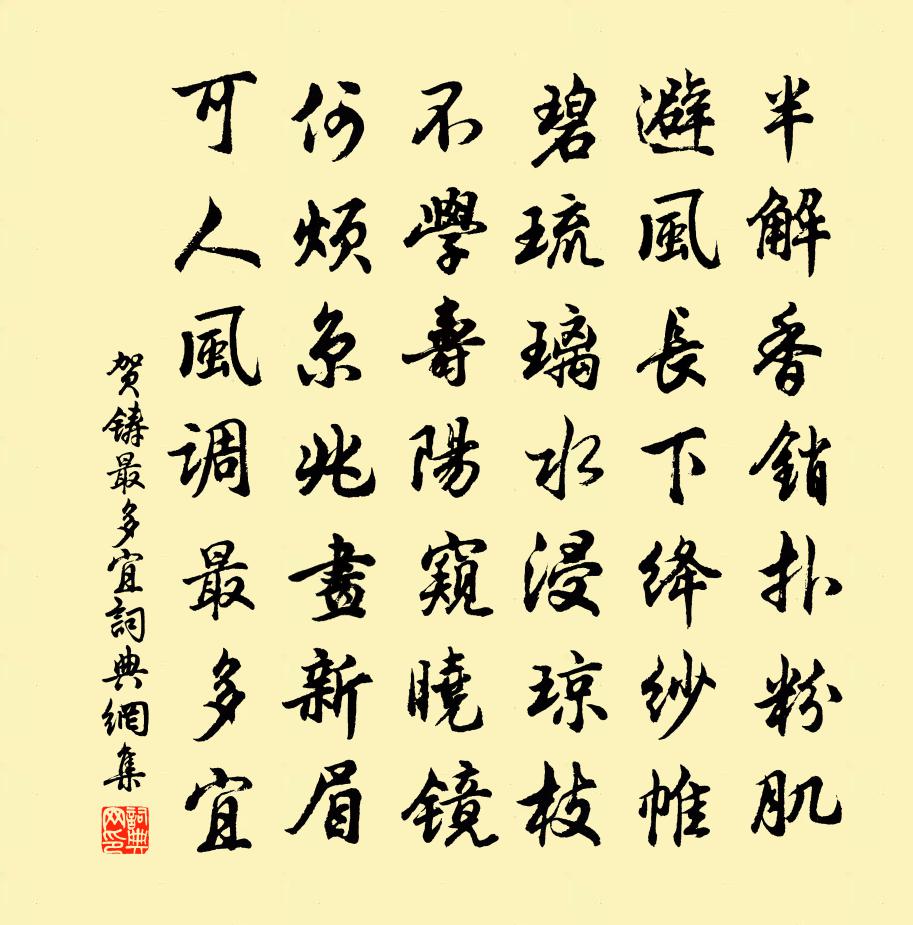 半解香銷扑粉肌
避風長下绛紗帷
碧琉璃水浸琼枝
不學壽陽窺曉镜
何烦京兆畫新眉
可人風调最多宜
贺鑄最多宜詞典網集
詞典网印